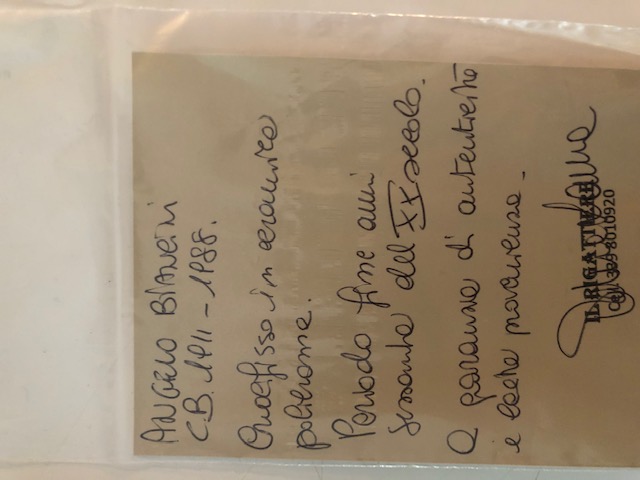 ANGELO BIANCINI
C.B. 1911 - 1988.
Crocifisso in ceramica
policroma.
Periodo fine anni
sessanta del XX secolo.
a garanzia di autenticità
e lecita provenienza.
IL RIGATTIERE